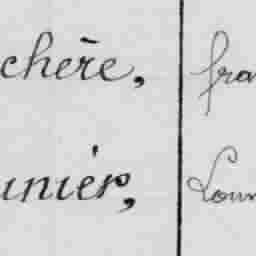 chère, fra
unier, Loun